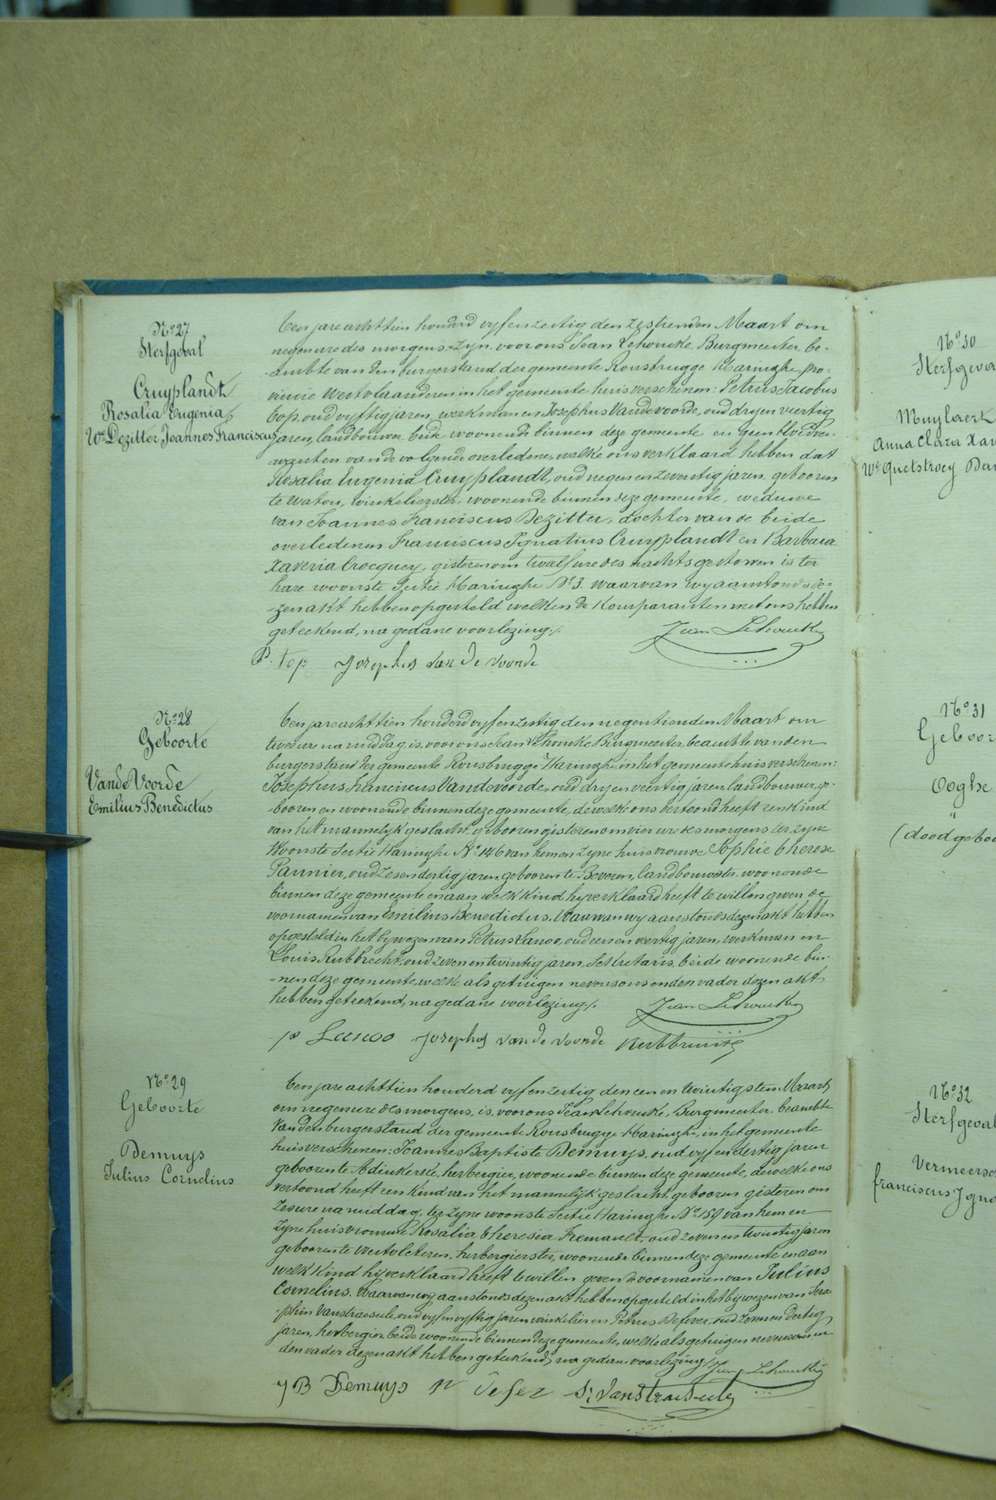 No 27
Sterfgeval
Cruyplandt
Rosalia Eugenia
We Dezitter Joannes Franciscus
Ten jare achttien honderd vyfenzestig den zestienden Maart om
negen ure des morgens, zyn voor ons Jean Lehoucke Burgmeester be-
ambte van den burgerstand der gemeente Rousbrugge Haringhe pro-
vincie Westvlaanderen in het gemeente huis verschenen: Petrus Jacobus
Top, oud vyftig jaren, werkman en Josephus Vandevoorde, oud dry en veertig
jaren, landbouwer beide woonende binnen deze gemeente en geen bloedver-
wanten van de volgende overledene, welke ons verklaard hebben dat
Rosalia Eugenia Cruyplandt, oud negen en zeventig jaren, geboren
te Watou, winkelierster woonende binnen deze gemeente, weduwe
van Joannes Franciscus Dezitter, dochter van de beide
overledenen Franciscus Ignatius Cruyplandt en Barbara
Xaveria Crocquey, gisteren om twaalf ure des nachts gestorven is ter
hare woonste Sectie Haringhe No 3. waarvan wy aanstonds de-
zen akt hebben opgesteld welken de komparanten met ons hebben
geteekend, na gedane voorlezing.
Jean Lehoucke
P. Top Josephus van de Voorde
No 28
Geboorte
Vande Voorde
Emilius Benedictus
Ten jare achttien honderd vyfenzestig den negentienden Maart om
twee ure na middag, is voor ons Jean Lehoucke Burgmeester, beambte van den
burgerstand der gemeente Rousbrugge Haringhe in het gemeente huis verschenen:
Josephus Franciscus Vandevoorde, oud dry en veertig jaren landbouwer, ge-
boren en woonende binnen deze gemeente, dewelke ons vertoond heeft een kind
van het mannelyk geslacht, geboren gisteren om vier ure des morgens ter zyne
woonste Sectie Haringhe No 146 van hem en zyne huisvrouwe Sophie Therese
Pannier, oud zes en dertig jaren, geboren te Beveren, landbouwster, woonende
binnen deze gemeente en aan welk kind hy verklaard heeft te willen geven de
voornamen van Emilius Benedictus. Waarvan wy aanstonds dezen akt hebben
opgesteld in het bywezen van Petrus Lanoo, oud een en veertig jaren, werkman en
Louis Rubbrecht, oud zeven en twintig jaren, Sekretaris, beide woonende bin-
nen deze gemeente, welke als getuigen nevens ons en den vader dezen akt
hebben geteekend, na gedane voorlezing.
Jean Lehoucke
p Lanoo Josephus van de Voorde
No 29
Geboorte
Demuys
Julius Cornelius
Ten jare achttien honderd vyfenzestig den een en twintigsten Maart
om negen ure des morgens, is voor ons Jean Lehoucke, Burgmeester, beambte
van den burgerstand der gemeente Rousbrugge Haringhe, in het gemeente
huis verschenen: Joannes Baptiste Demuys, oud vyf en dertig jaren
geboren te Adinkerke, herbergier, woonende binnen deze gemeente, dewelke ons
vertoond heeft een kind van het mannelyk geslacht, geboren gisteren om
zes ure na middag, ter zyne woonste Sectie Haringhe No 159 van hem en
zyne huisvrouwe Rosalia Theresia Fremault, oud zeven en twintig jaren
geboren te Westvleteren, herbergierster, woonende binnen deze gemeente en aan
welk kind hy verklaard heeft te willen geven de voornamen van Julius
Cornelius. Waarvan wy aanstonds dezen akt hebben opgesteld in het bywezen van Sera-
phin Vanstraeseele, oud vyf en vyftig jaren, winkelier en Petrus Defever, oud dertig
jaren, herbergier beide woonende binnen deze gemeente, welke als getuigen nevens ons en
den vader dezen akt hebben geteekend, na gedane voorlezing. Jean Lehoucke
J B Demuys P Defever S. Vanstraeseele
No 30
Sterfgeval
Muylaert
Anna Clara Xav
We Quetstroey Dan
No 31
Geboor
Ooghe
"
(doodgebo
No 32
Sterfgeval
Vermeersc
franciscus Igna